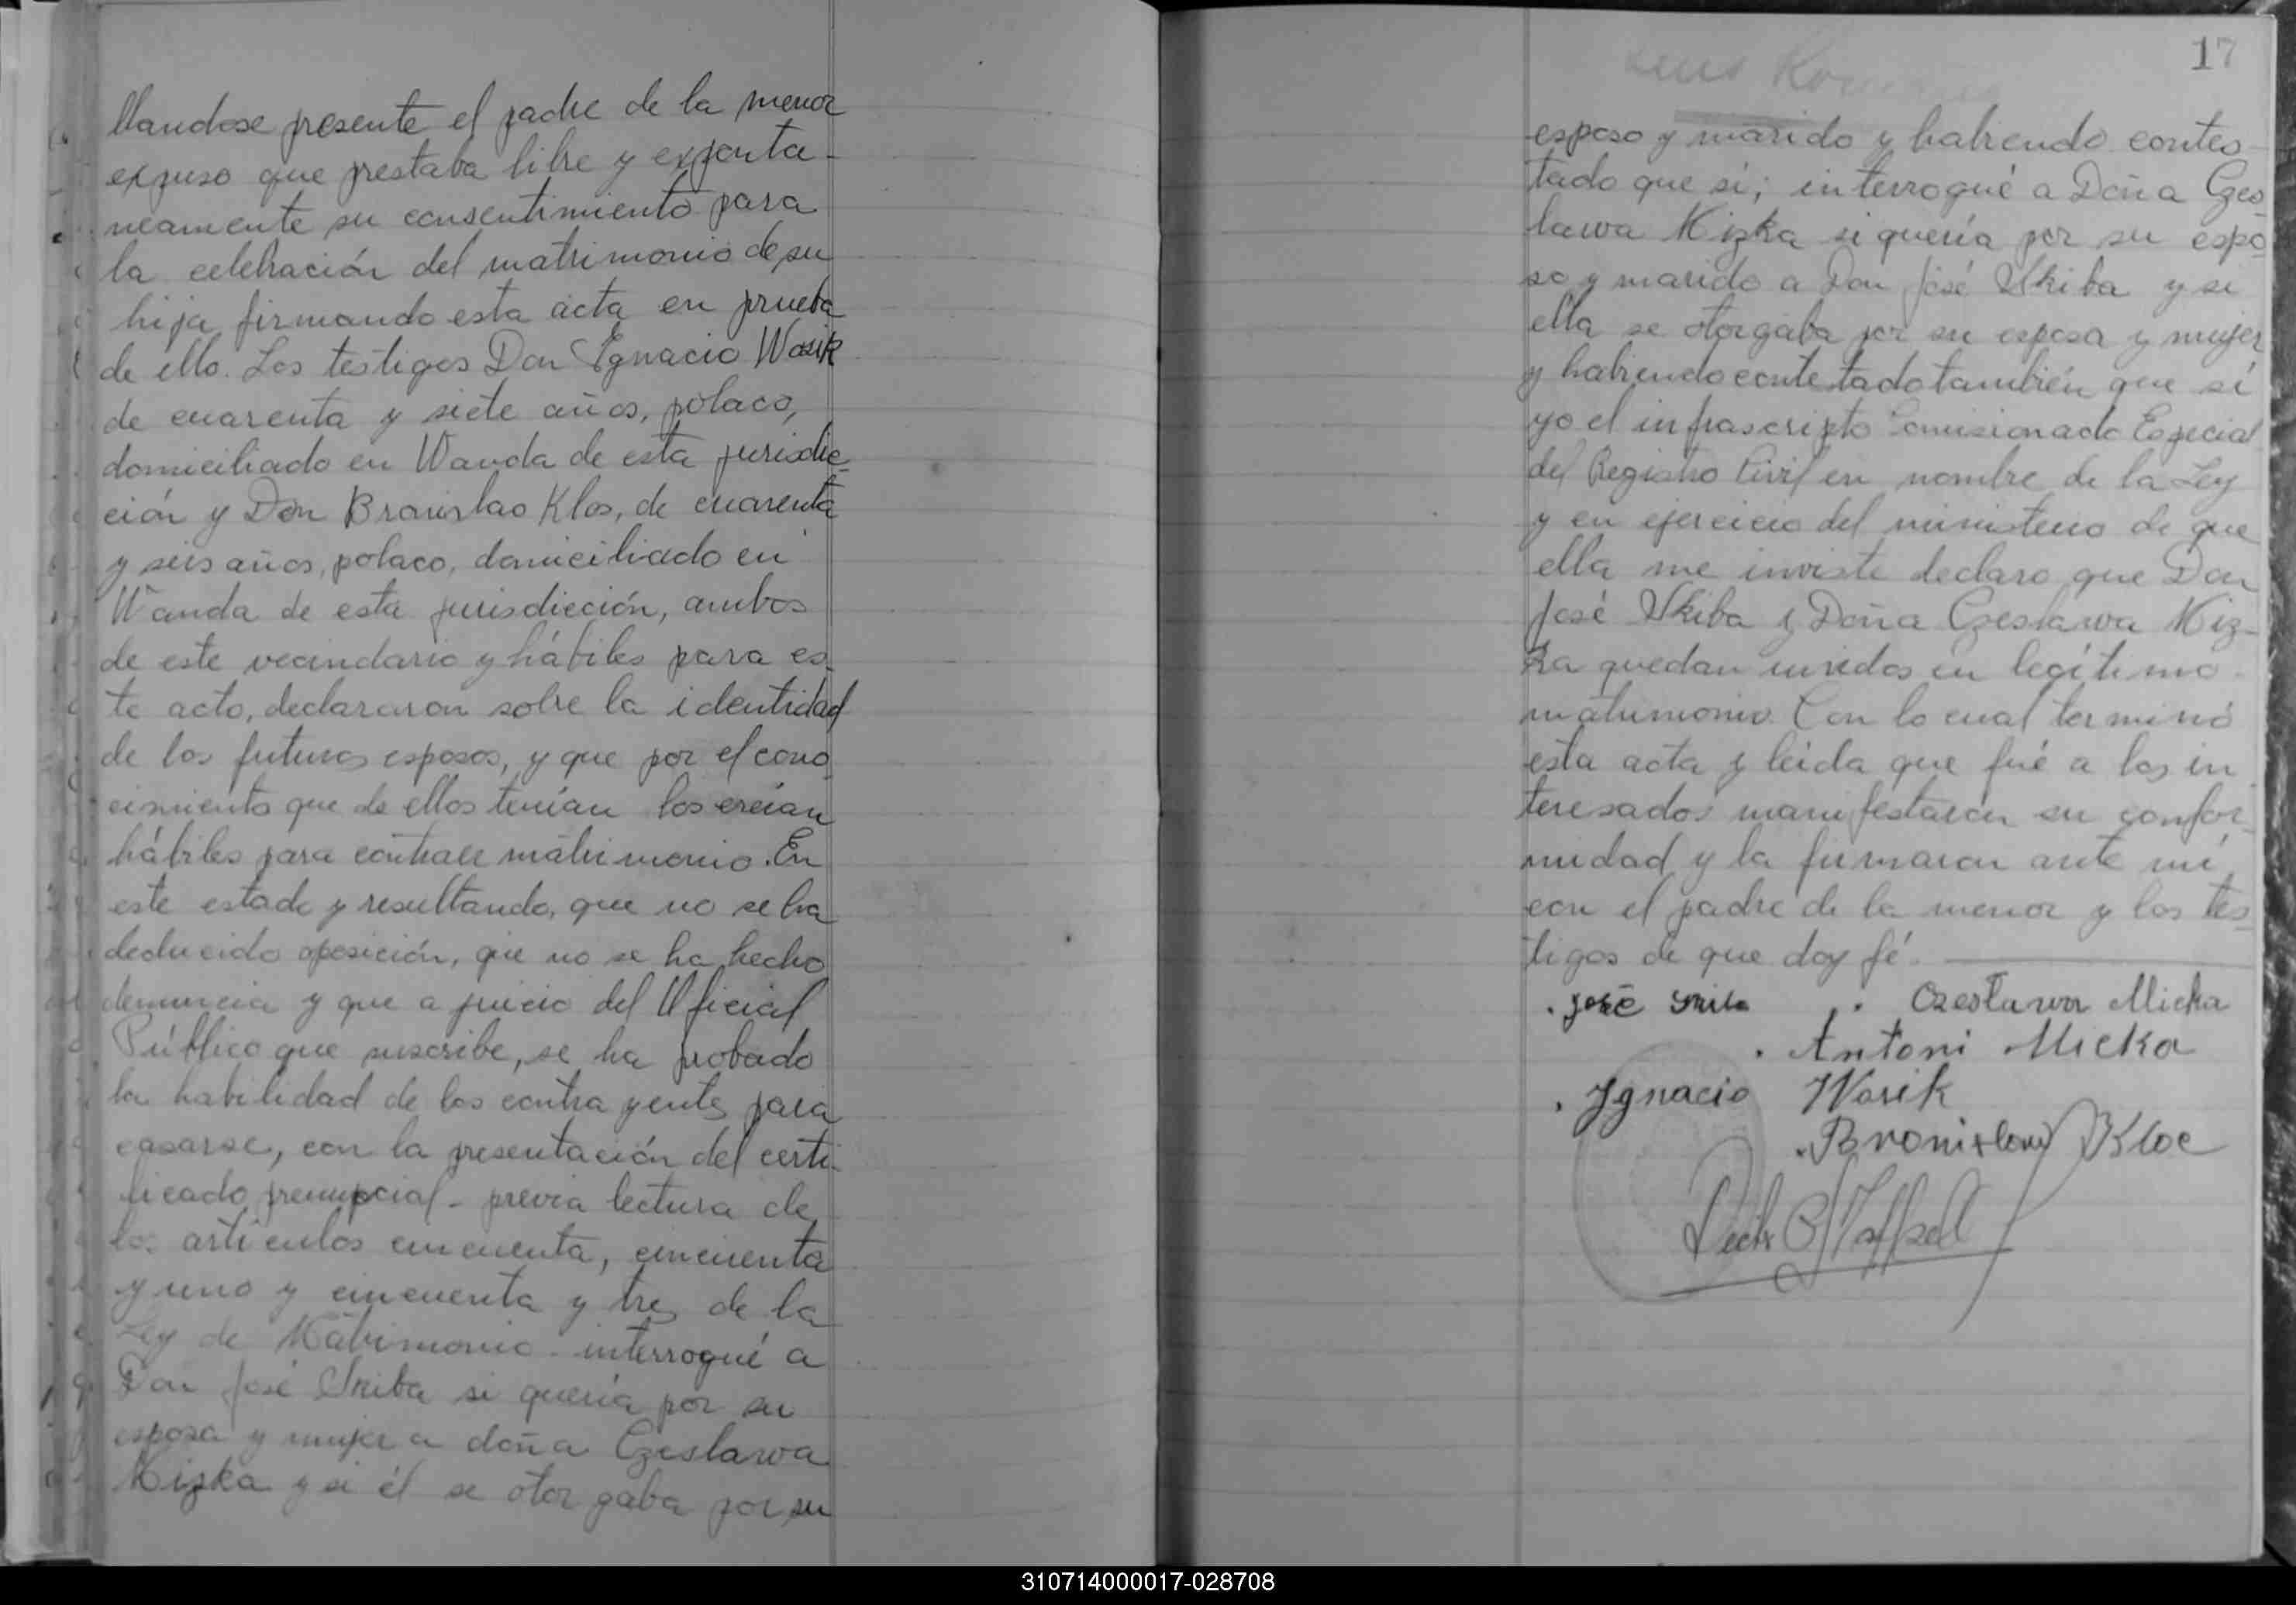 llandose presente el padre de la menor
expuso que prestaba libre y exponta-
neamente su consentimiento para
la celebración del matrimonio de su
hija firmando esta acta en prueba
de ello. Los testigos Don Ignacio Wasik
de cuarenta y siete años, polaco,
domiciliado en Wanda de esta jurisdic-
ción y Don Bronislao Klos, de cuarenta
y seis años, polaco, domiciliado en
Wanda de esta jurisdicción, ambos
de este vecindario y hábiles para es-
te acto, declararon sobre la identidad
de los futuros esposos, y que por el cono-
cimiento que de ellos tenían los creían
hábiles para contraer matrimonio. En
este estado y resultando, que no se ha
deducido oposición, que no se ha hecho
denuncia y que a juicio del Oficial
Público que suscribe, se ha probado
la habilidad de los contrayentes para
casarse, con la presentación del certi-
ficado prenupcial - previa lectura de
los artículos cincuenta, cincuenta
y uno y cincuenta y tres de la
Ley de Matrimonio - interrogué a
Don José Skiba si quería por su
esposa y mujer a doña Czeslawa
Mizka y si él se otorgaba por su
17
esposo y marido y habiendo contes-
tado que sí; interrogué a Doña Czes-
lawa Mizka si quería por su espo-
so y marido a Don José Skiba y si
ella se otorgaba por su esposa y mujer
y habiendo contestado también que sí
yo el infrascripto Comisionado Especial
del Registro Civil en nombre de la Ley
y en ejercicio del ministerio de que
ella me inviste declaro que Don
José Skiba y Doña Czeslawa Miz-
ka quedan unidos en legítimo
matrimonio. Con lo cual terminó
esta acta y leída que fué a los in-
teresados manifestaron su confor-
midad y la firmaron ante mí
con el padre de la menor y los tes-
tigos de que doy fé.
José Skiba Czesława Micka
Antoni Micka
Ignacio Wasik
Bronisław Kloc
310714000017-028708